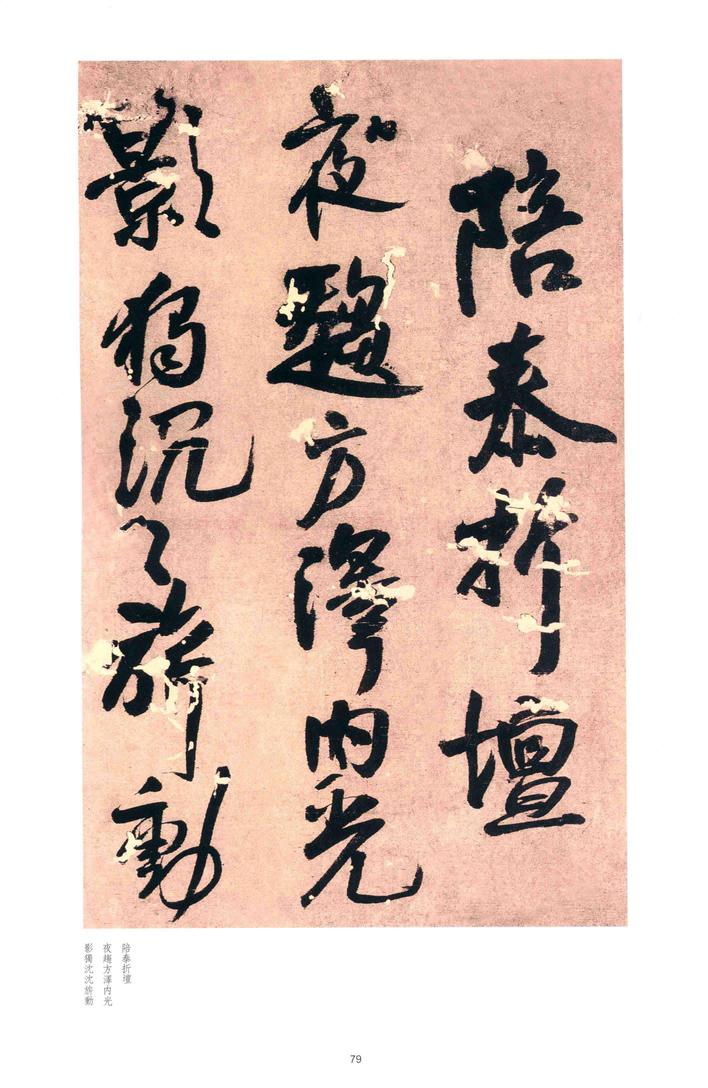 陪泰折壇
夜趨方澤內光
影獨沉〻旂動
陪泰折壇
夜趨方澤内光
影獨沈沈旂動
79